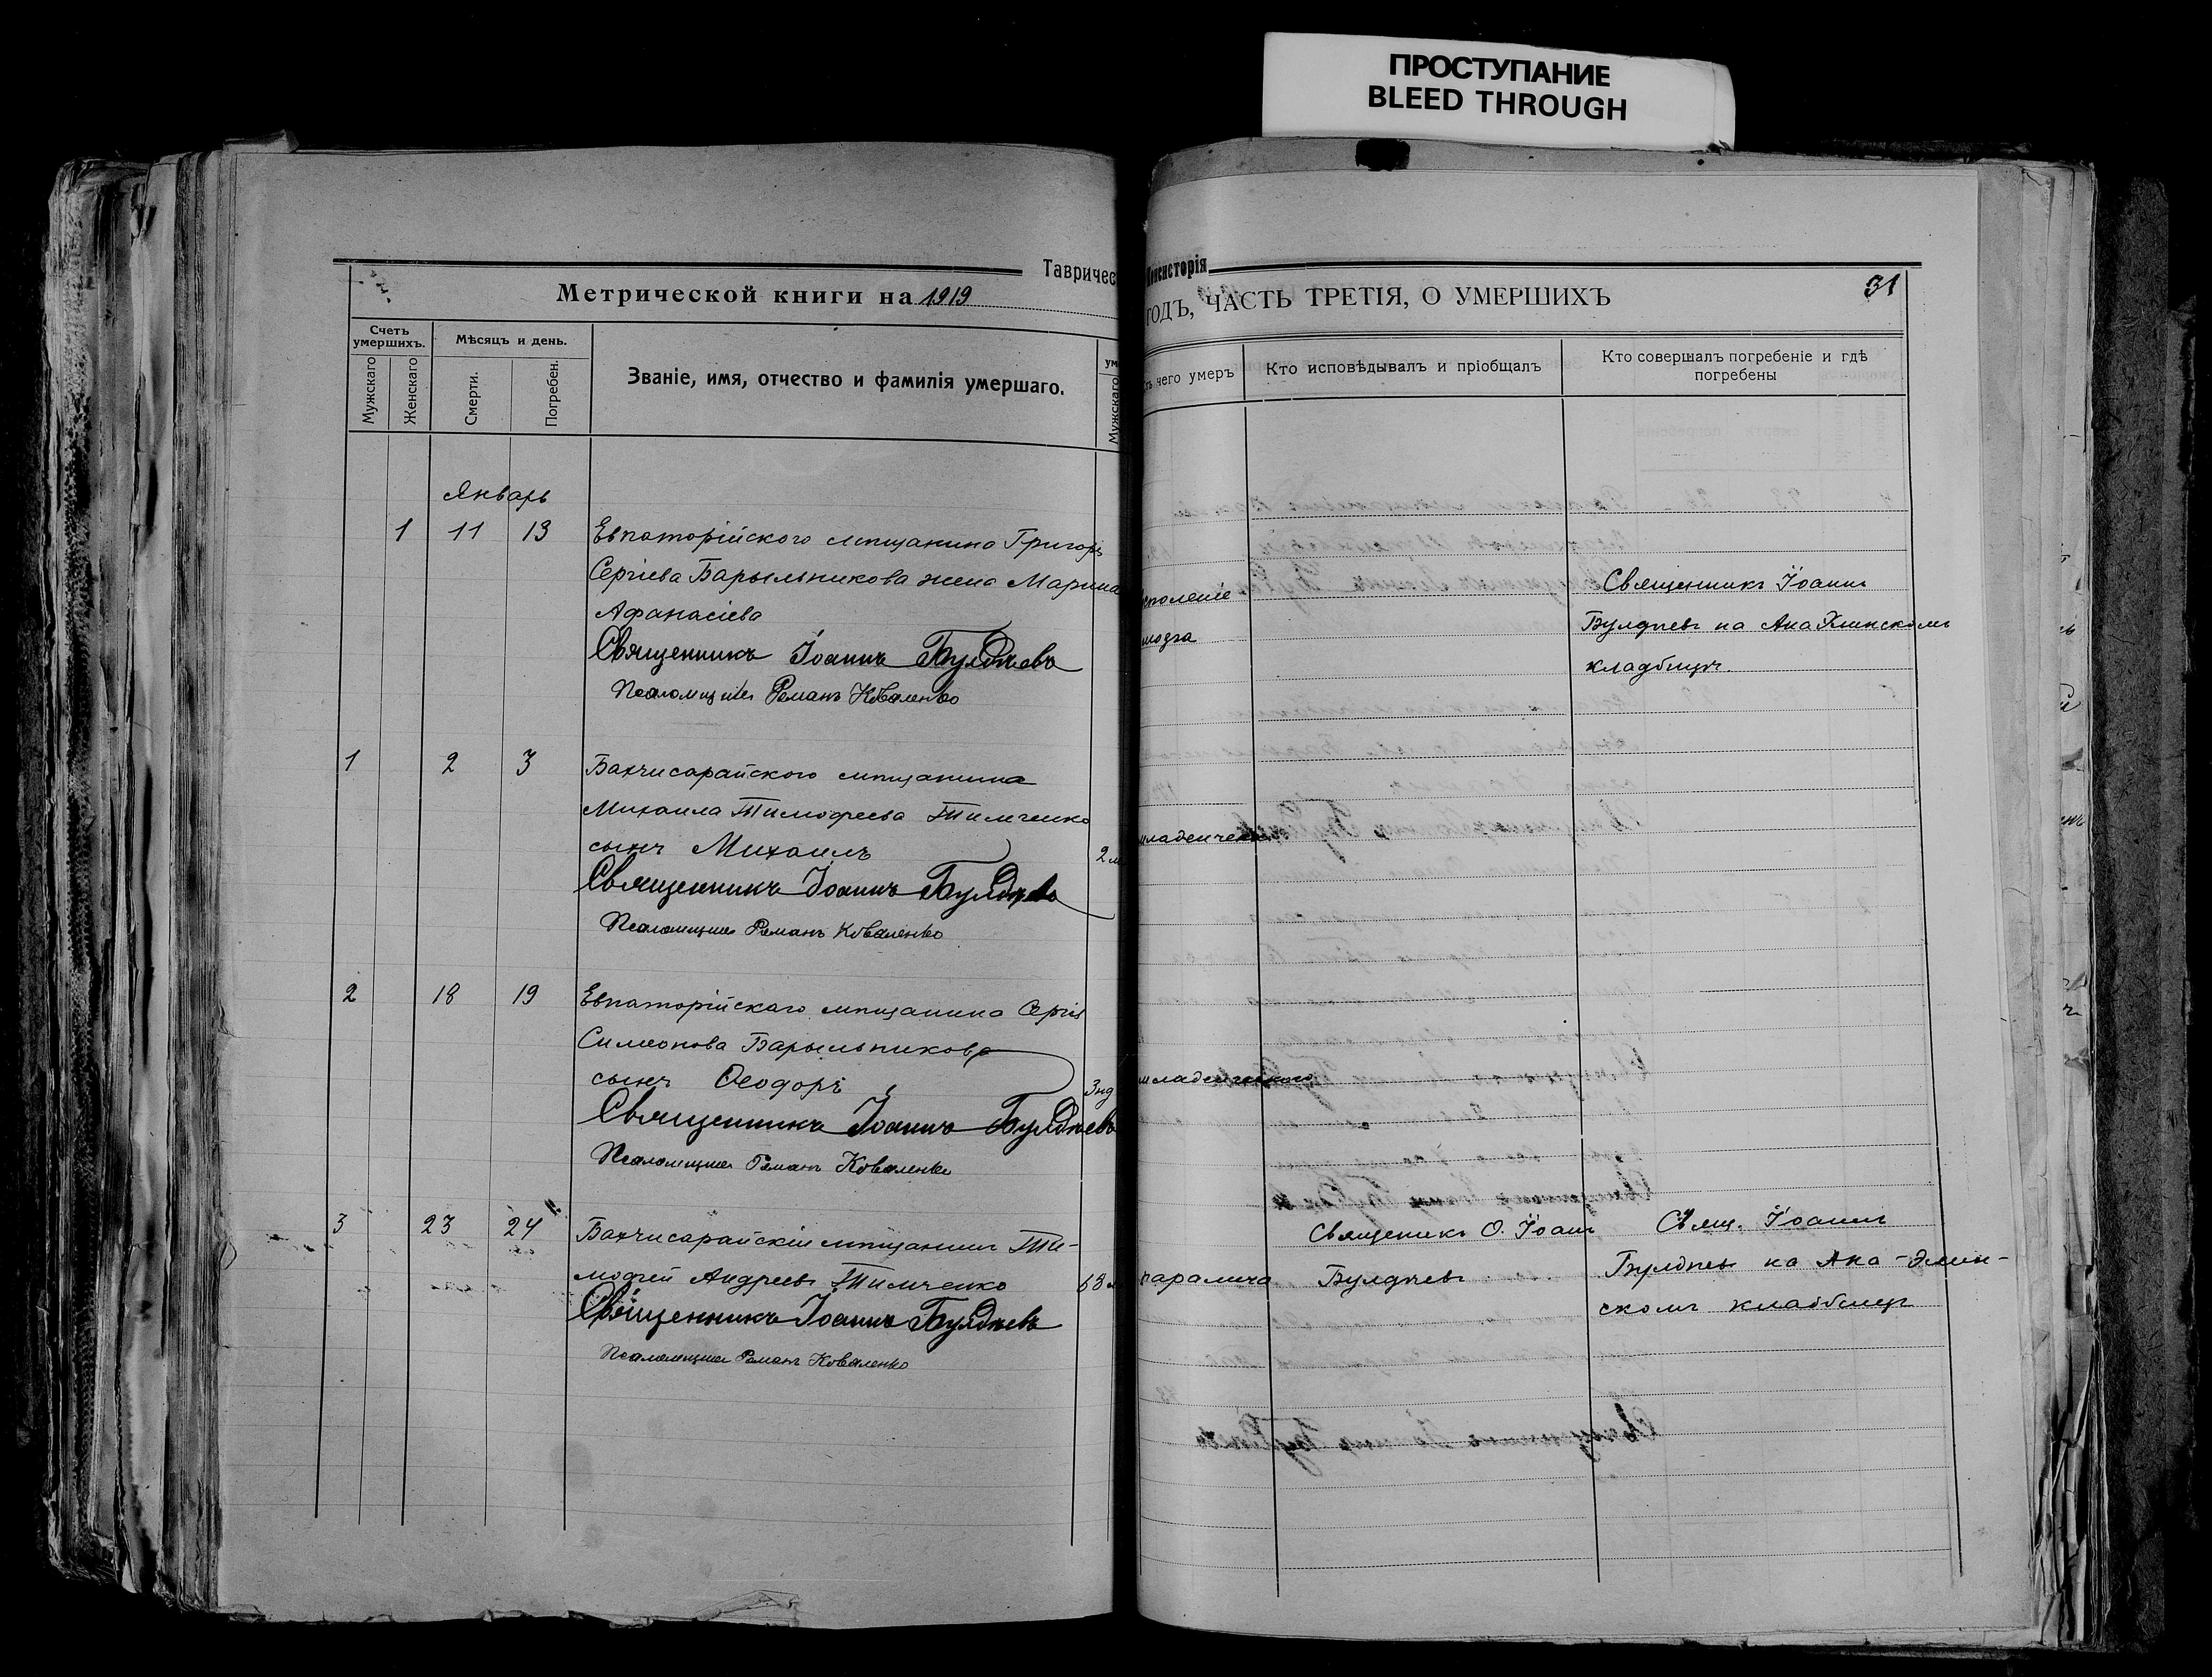 ПРОСТУПАНИЕ
BLEED THROUGH
Тавричес
Консисторія
Метрической книги на 1919
ГОДЪ, ЧАСТЬ ТРЕТІЯ, О УМЕРШИХЪ
31
Счетъ умершихъ.
Мужскаго
Женскаго
Мѣсяцъ и день.
Смерти.
Погребен.
Званіе, имя, отчество и фамилія умершаго.
ум
Мужскаго
чего умеръ
Кто исповѣдывалъ и пріобщалъ
Кто совершалъ погребеніе и гдѣ
погребены
Январь
1 11 13 Евпаторійского мѣщанина Григорі
Сергіева Барыльникова жена Марина
Афанасіева
Священникъ Іоаннъ Булдѣевъ
Псаломщикъ Романъ Коваленко
мозга
Священникъ Іоаннъ
Булдѣевъ на
кладбищѣ.
1 2 3 Бахчисарайского мѣщанина
Михаила Тимофеева Тимченко
сынъ Михаилъ 2 м
Священникъ Іоаннъ Булдѣевъ
Псаломщикъ Романъ Коваленко
младенческ
2 18 19 Евпаторійскаго мѣщанина Сергія
Симеонова Барыльникова
сынъ Ѳеодоръ 3 нд
Священникъ Іоаннъ Булдѣевъ
Псаломщикъ Романъ Коваленко
младенческ
3 23 24 Бахчисарайскій мѣщанинъ Ти-
мофей Андреевъ Тимченко 63
Священникъ Іоаннъ Булдѣевъ
Псаломщикъ Романъ Коваленко
паралича
Священикъ О. Іоанъ
Булдѣевъ
Свящ. Іоаннъ
Булдѣевъ на Ака-Элин-
скомъ кладбищѣ